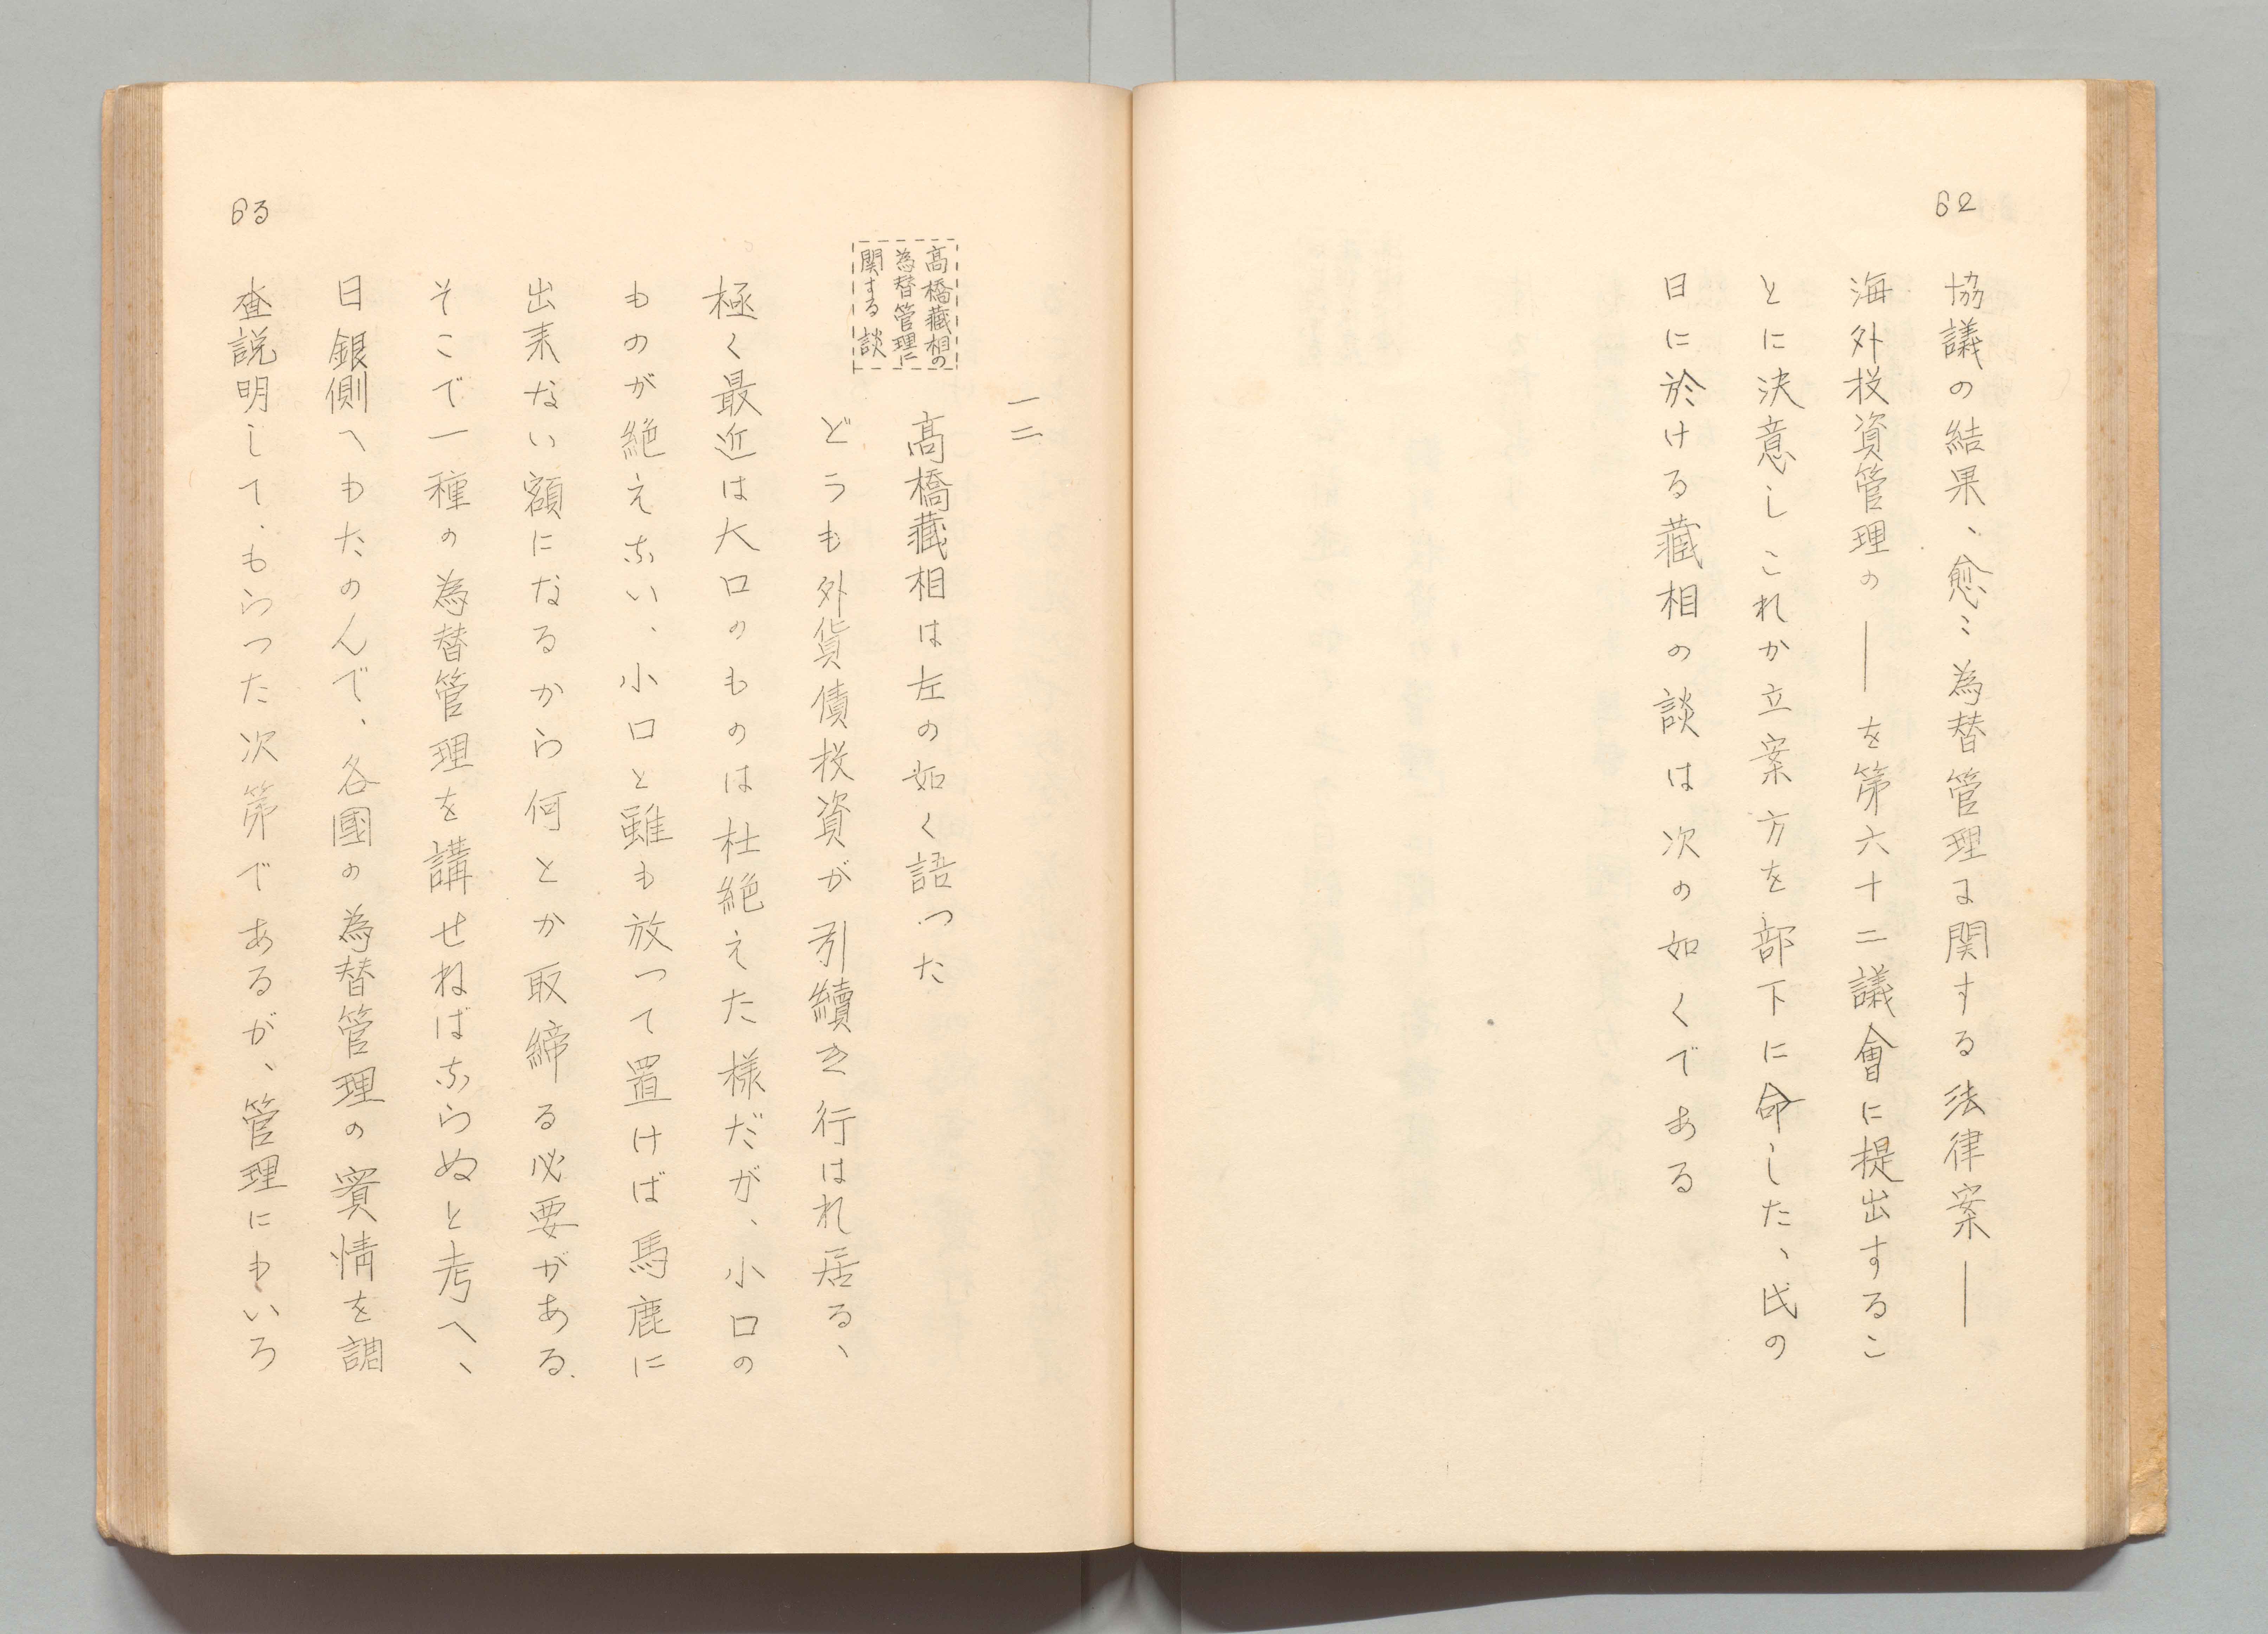 62
協議の結果、愈〻為替管理に関する法律案―
海外投資管理の―を第六十二議會に提出するこ
とに決意しこれか立案方を部下に命した、氏の
日に於ける藏相の談は次の如くである
63
一二
高橋藏相の
為替管理に
関する談
高橋藏相は左の如く語った
どうも外貨債投資が引續き行はれ居る、
極く最近は大口のものは杜絶えた様だが、小口の
ものが絶えない、小口と雖も放って置けば馬鹿に
出来ない額になるから何とか取締る必要がある.
そこで一種の為替管理を講せねばならぬと考へ、
日銀側へもたのんで、各國の為替管理の實情を調
査説明して、もらった次第であるが、管理にもいろ